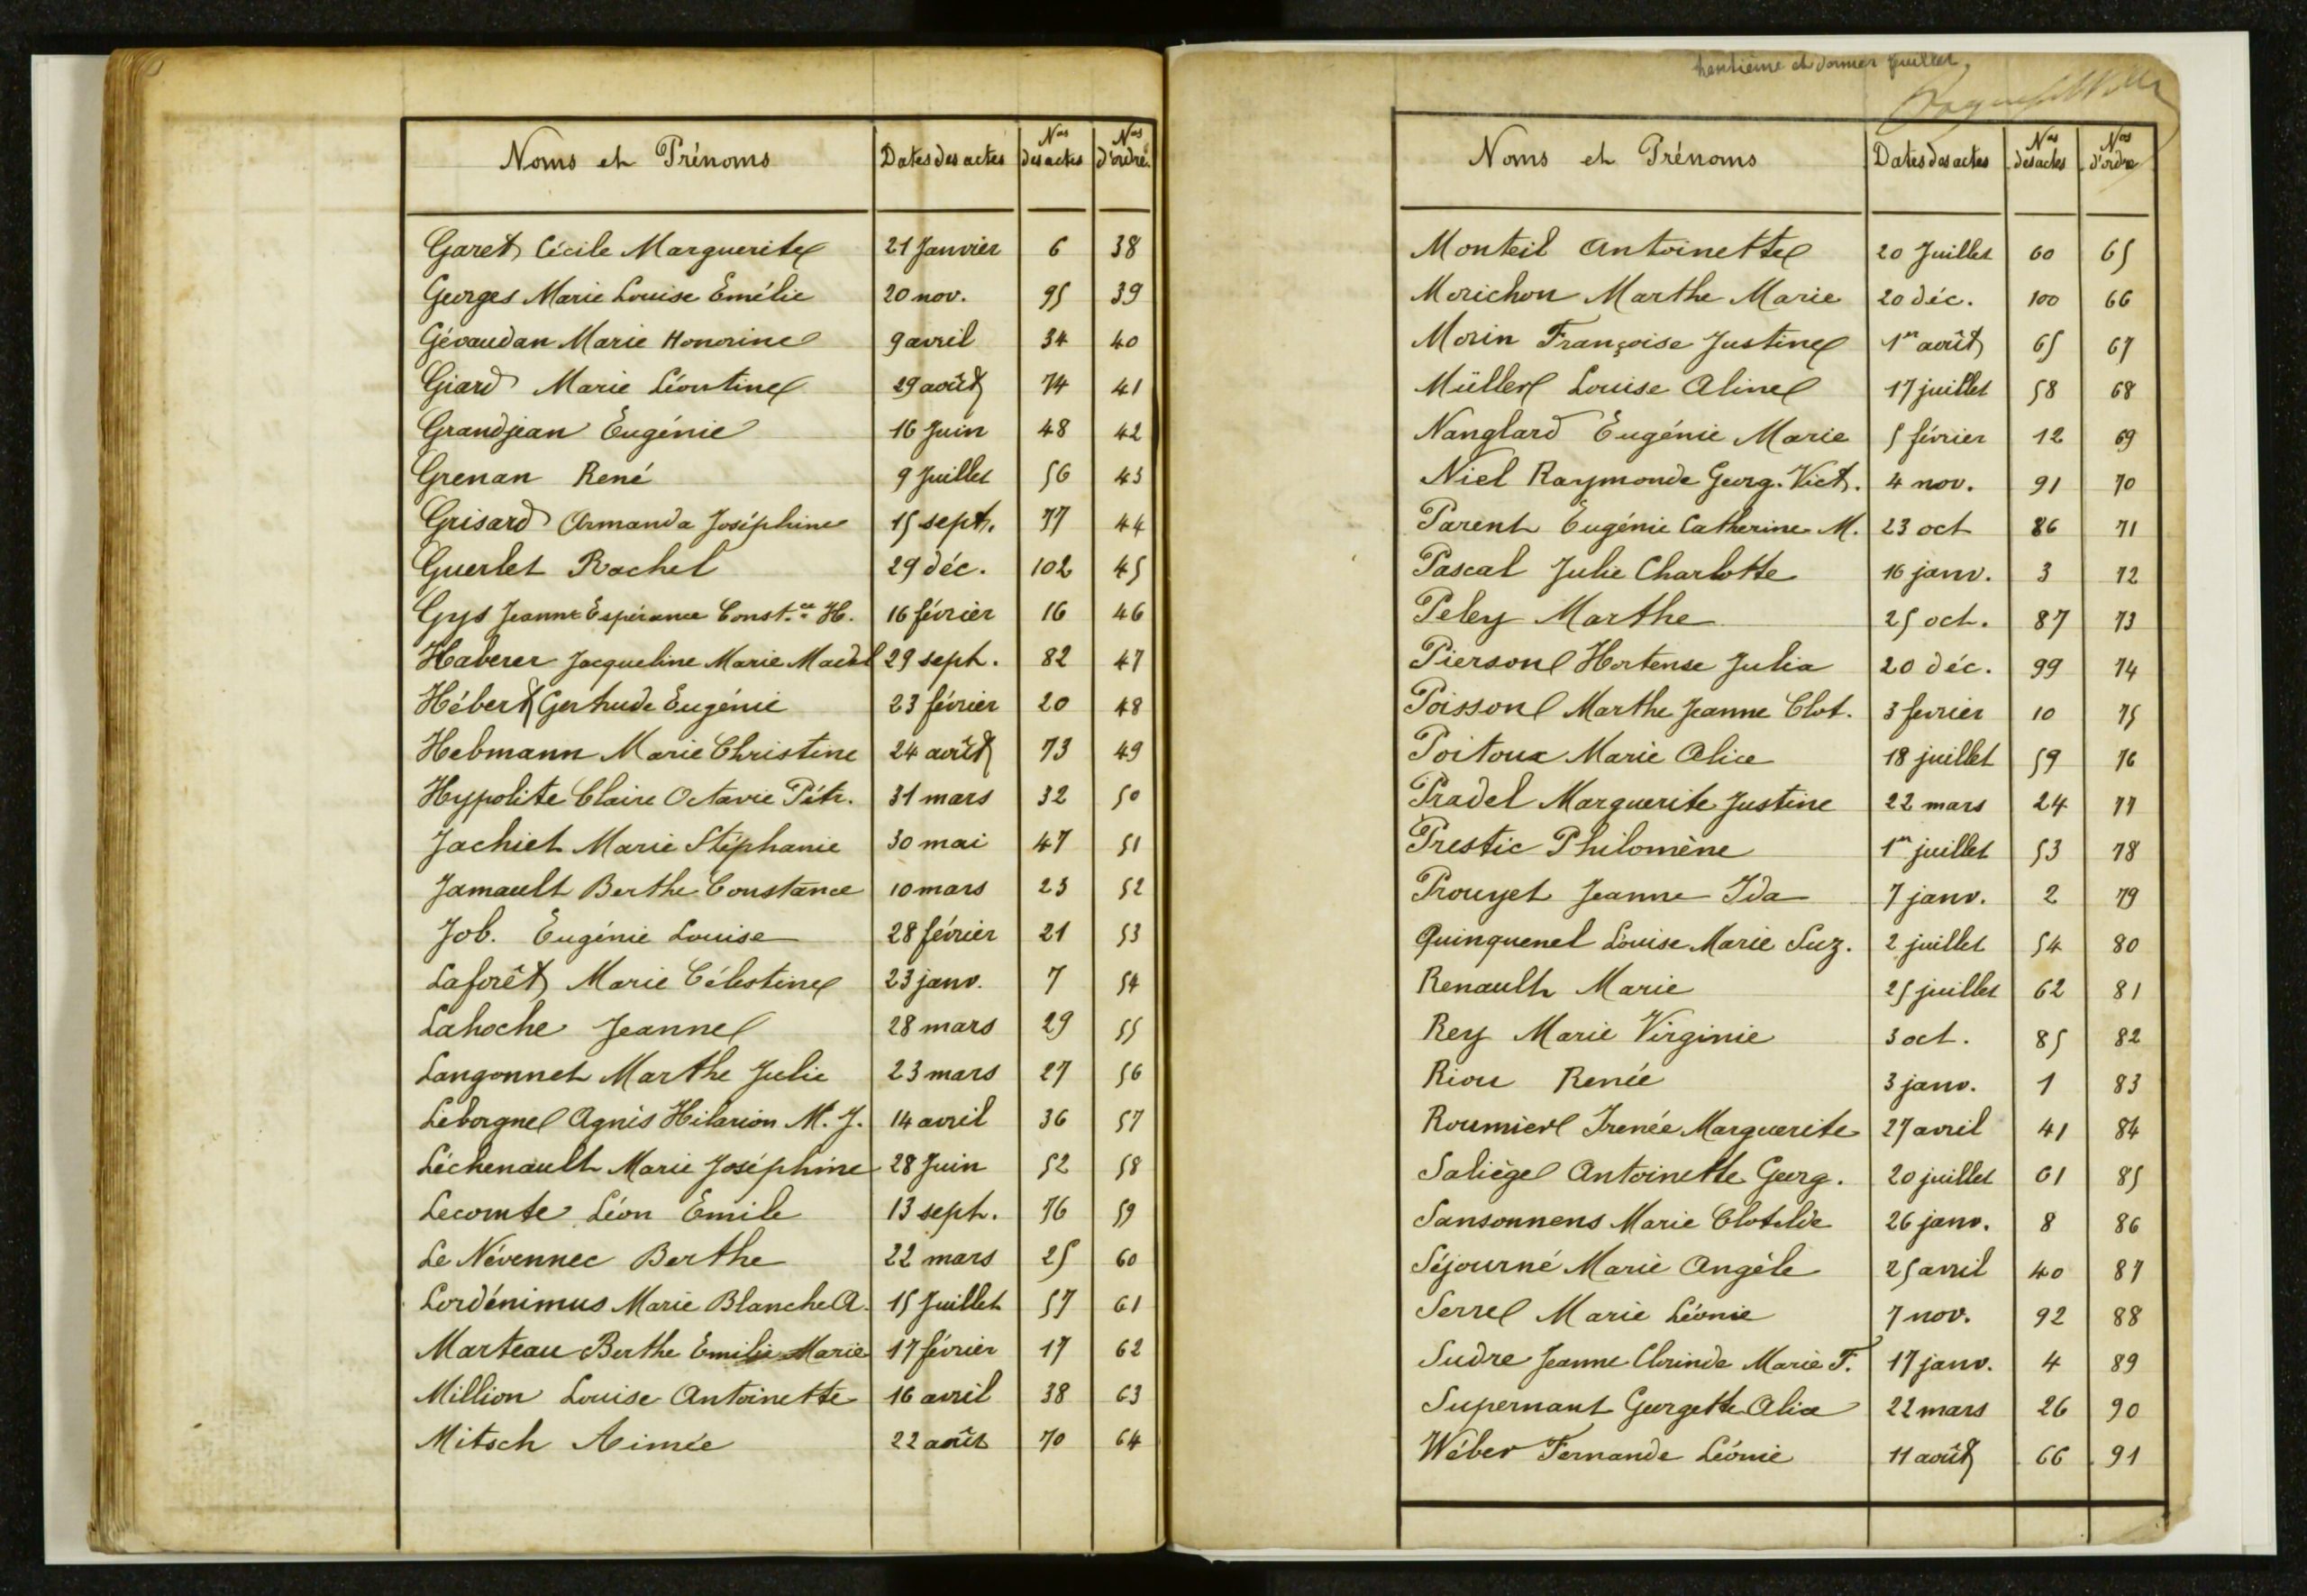 Noms et Prénoms Dates des actes Nos des actes Nos d'ordre
Garet Cécile Marguerite 21 Janvier 6 38
Georges Marie Louise Emélie 20 nov. 95 39
Gévaudan Marie Honorine 9 avril 34 40
Giard Marie Léontine 29 août 74 41
Grandjean Eugénie 16 Juin 48 42
Grenan René 9 Juillet 56 43
Grisard Armanda Joséphine 15 sept. 77 44
Guerlet Rachel 29 déc. 102 45
Gys Jeanne Espérance Const.ce H. 16 février 16 46
Haberer Jacqueline Marie Madel 29 sept. 82 47
Hébert Gertrude Eugénie 23 février 20 48
Hebmann Marie Christine 24 août 73 49
Hypolite Claire Octavie Pétr. 31 mars 32 50
Jachiet Marie Stéphanie 30 mai 47 51
Jamault Berthe Constance 10 mars 23 52
Job. Eugénie Louise 28 février 21 53
Laforêt Marie Célestine 23 janv. 7 54
Lahoche Jeanne 28 mars 29 55
Langonnet Marthe Julie 23 mars 27 56
Leborgne Agnès Hilarion M. J. 14 avril 36 57
Léchenault Marie Joséphine 28 Juin 52 58
Lecomte Léon Emile 13 sept. 76 59
Le Névennec Berthe 22 mars 25 60
Lordénimus Marie Blanche A. 15 Juillet 57 61
Marteau Berthe Emilie Marie 17 février 17 62
Million Louise Antoinette 16 avril 38 63
Mitsch Aimée 22 août 70 64
trentième et dernier feuillet.
Noms et Prénoms Dates des actes Nos des actes Nos d'ordre
Monteil Antoinette 20 Juillet 60 65
Morichon Marthe Marie 20 déc. 100 66
Morin Françoise Justine 1er août 65 67
Müller Louise Aline 17 juillet 58 68
Nanglard Eugénie Marie 5 février 12 69
Niel Raymonde Georg. Vict. 4 nov. 91 70
Parent Eugénie Catherine M. 23 oct 86 71
Pascal Julie Charlotte 16 janv. 3 72
Peley Marthe 25 oct. 87 73
Pierson Hortense Julia 20 déc. 99 74
Poisson Marthe Jeanne Clot. 3 fevrier 10 75
Poitoux Marie Alice 18 juillet 59 76
Pradel Marguerite Justine 22 mars 24 77
Prestic Philomène 1er juillet 53 78
Prouyet Jeanne Ida 7 janv. 2 79
Quinquenel Louise Marie Suz. 2 juillet 54 80
Renault Marie 25 juillet 62 81
Rey Marie Virginie 3 oct. 85 82
Riou Renée 3 janv. 1 83
Roumier Irenée Marguerite 27 avril 41 84
Saliège Antoinette Georg. 20 juillet 61 85
Sansonnens Marie Clotilde 26 janv. 8 86
Séjourné Marie Angèle 25 avril 40 87
Serre Marie Léonie 7 nov. 92 88
Sudre Jeanne Clorinde Marie F. 17 janv. 4 89
Supernant Georgette Alice 22 mars 26 90
Wéber Fernande Léonie 11 août 66 91